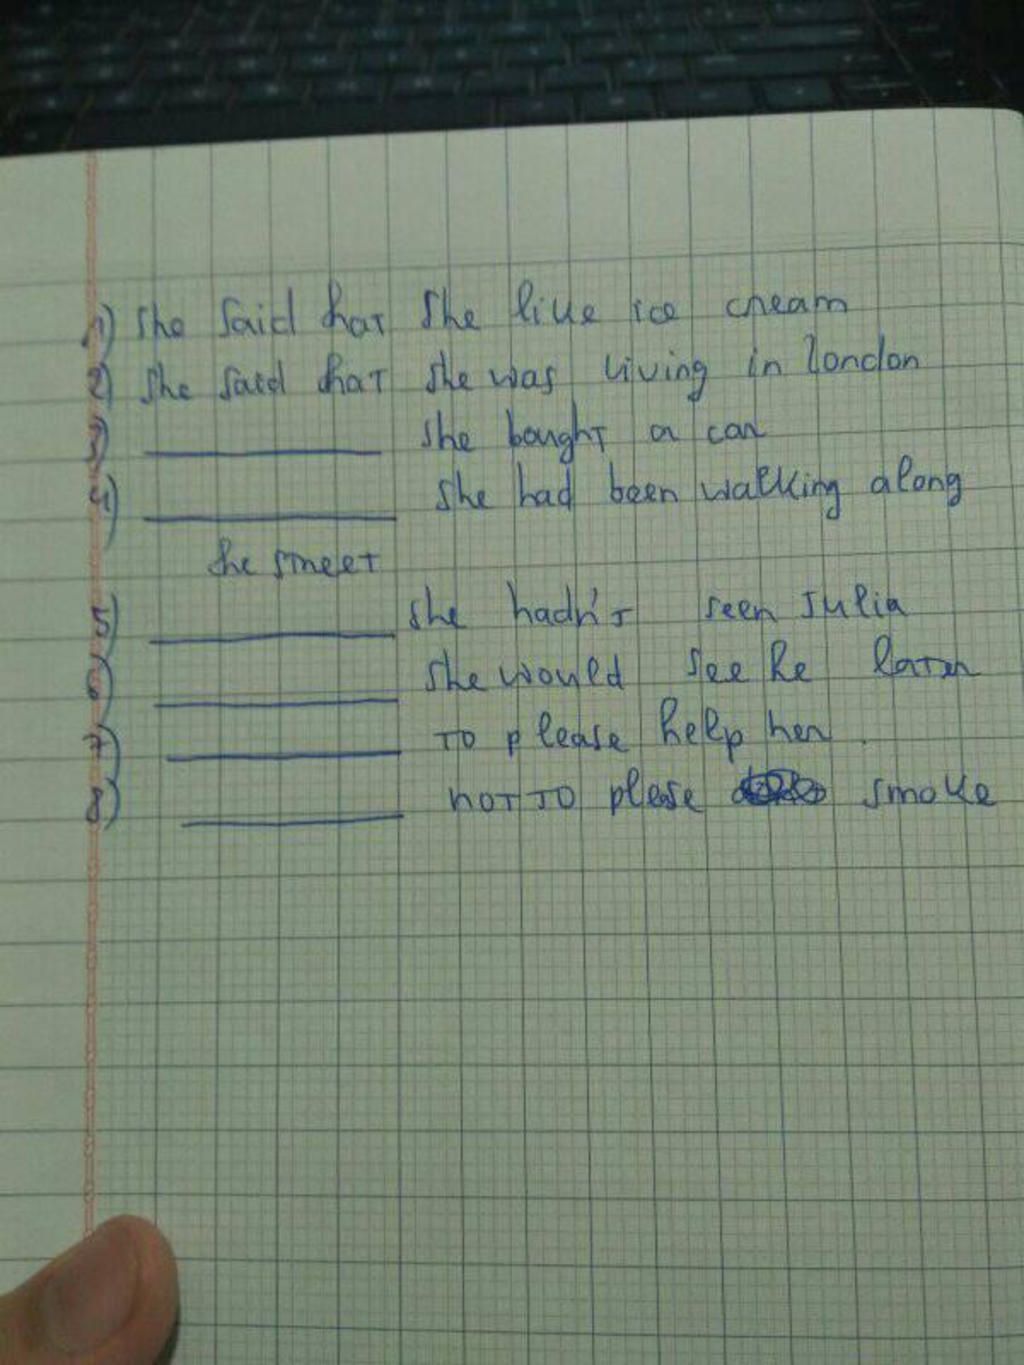 1) she said that she like ice cream
2) she said that she was living in london
3) she bought a car
4) she had been walking along
the street
5) she hadn't seen Julia
6) she would see he later
7) to please help her.
8) not to plese smoke